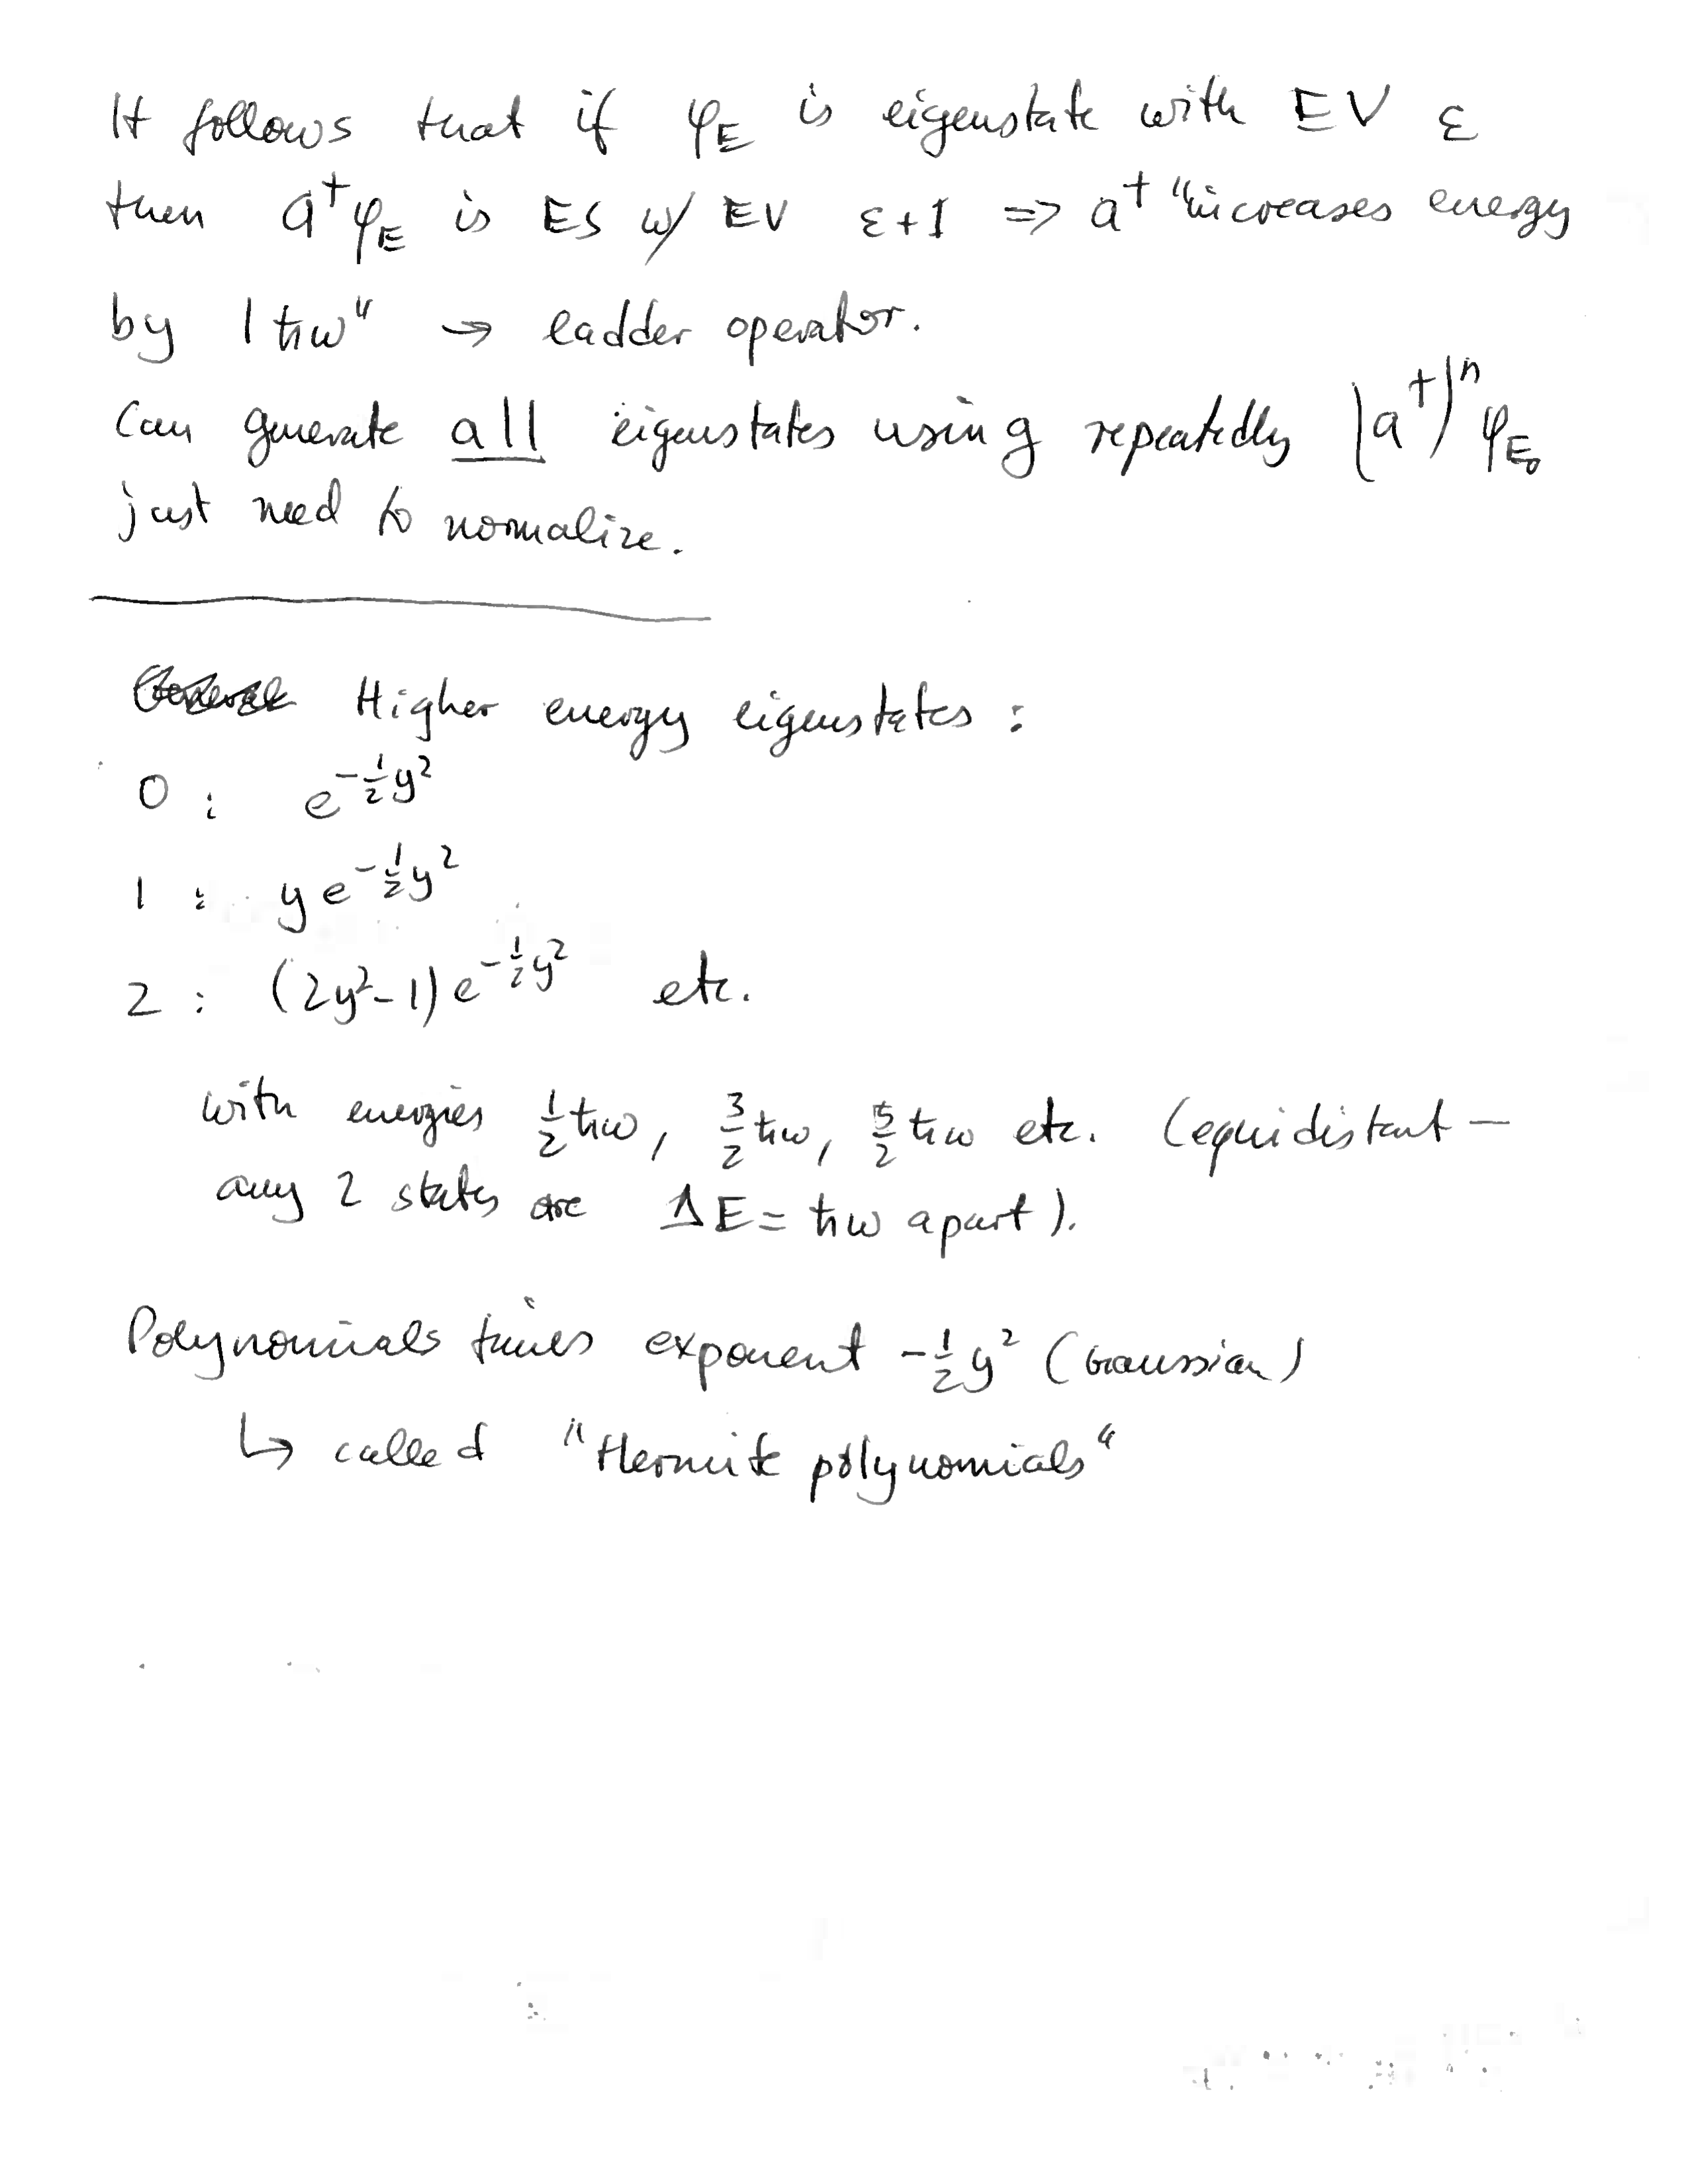 It follows that if φ_E is eigenstate with EV ε
then a†φ_E is ES w/ EV ε+1 ⇒ a† "increases energy
by 1 ħω" → ladder operator.
Can generate all eigenstates using repeatedly (a†)ⁿ φ_E₀
just need to normalize.
Higher energy eigenstates :
0 : e^{-½y²}
1 : y e^{-½y²}
2 : (2y²-1) e^{-½y²} etc.
with energies ½ħω, 3/2 ħω, 5/2 ħω etc. (equidistant —
any 2 states are ΔE = ħω apart).
Polynomials times exponent -½y² (Gaussian)
↳ called "Hermite polynomials"